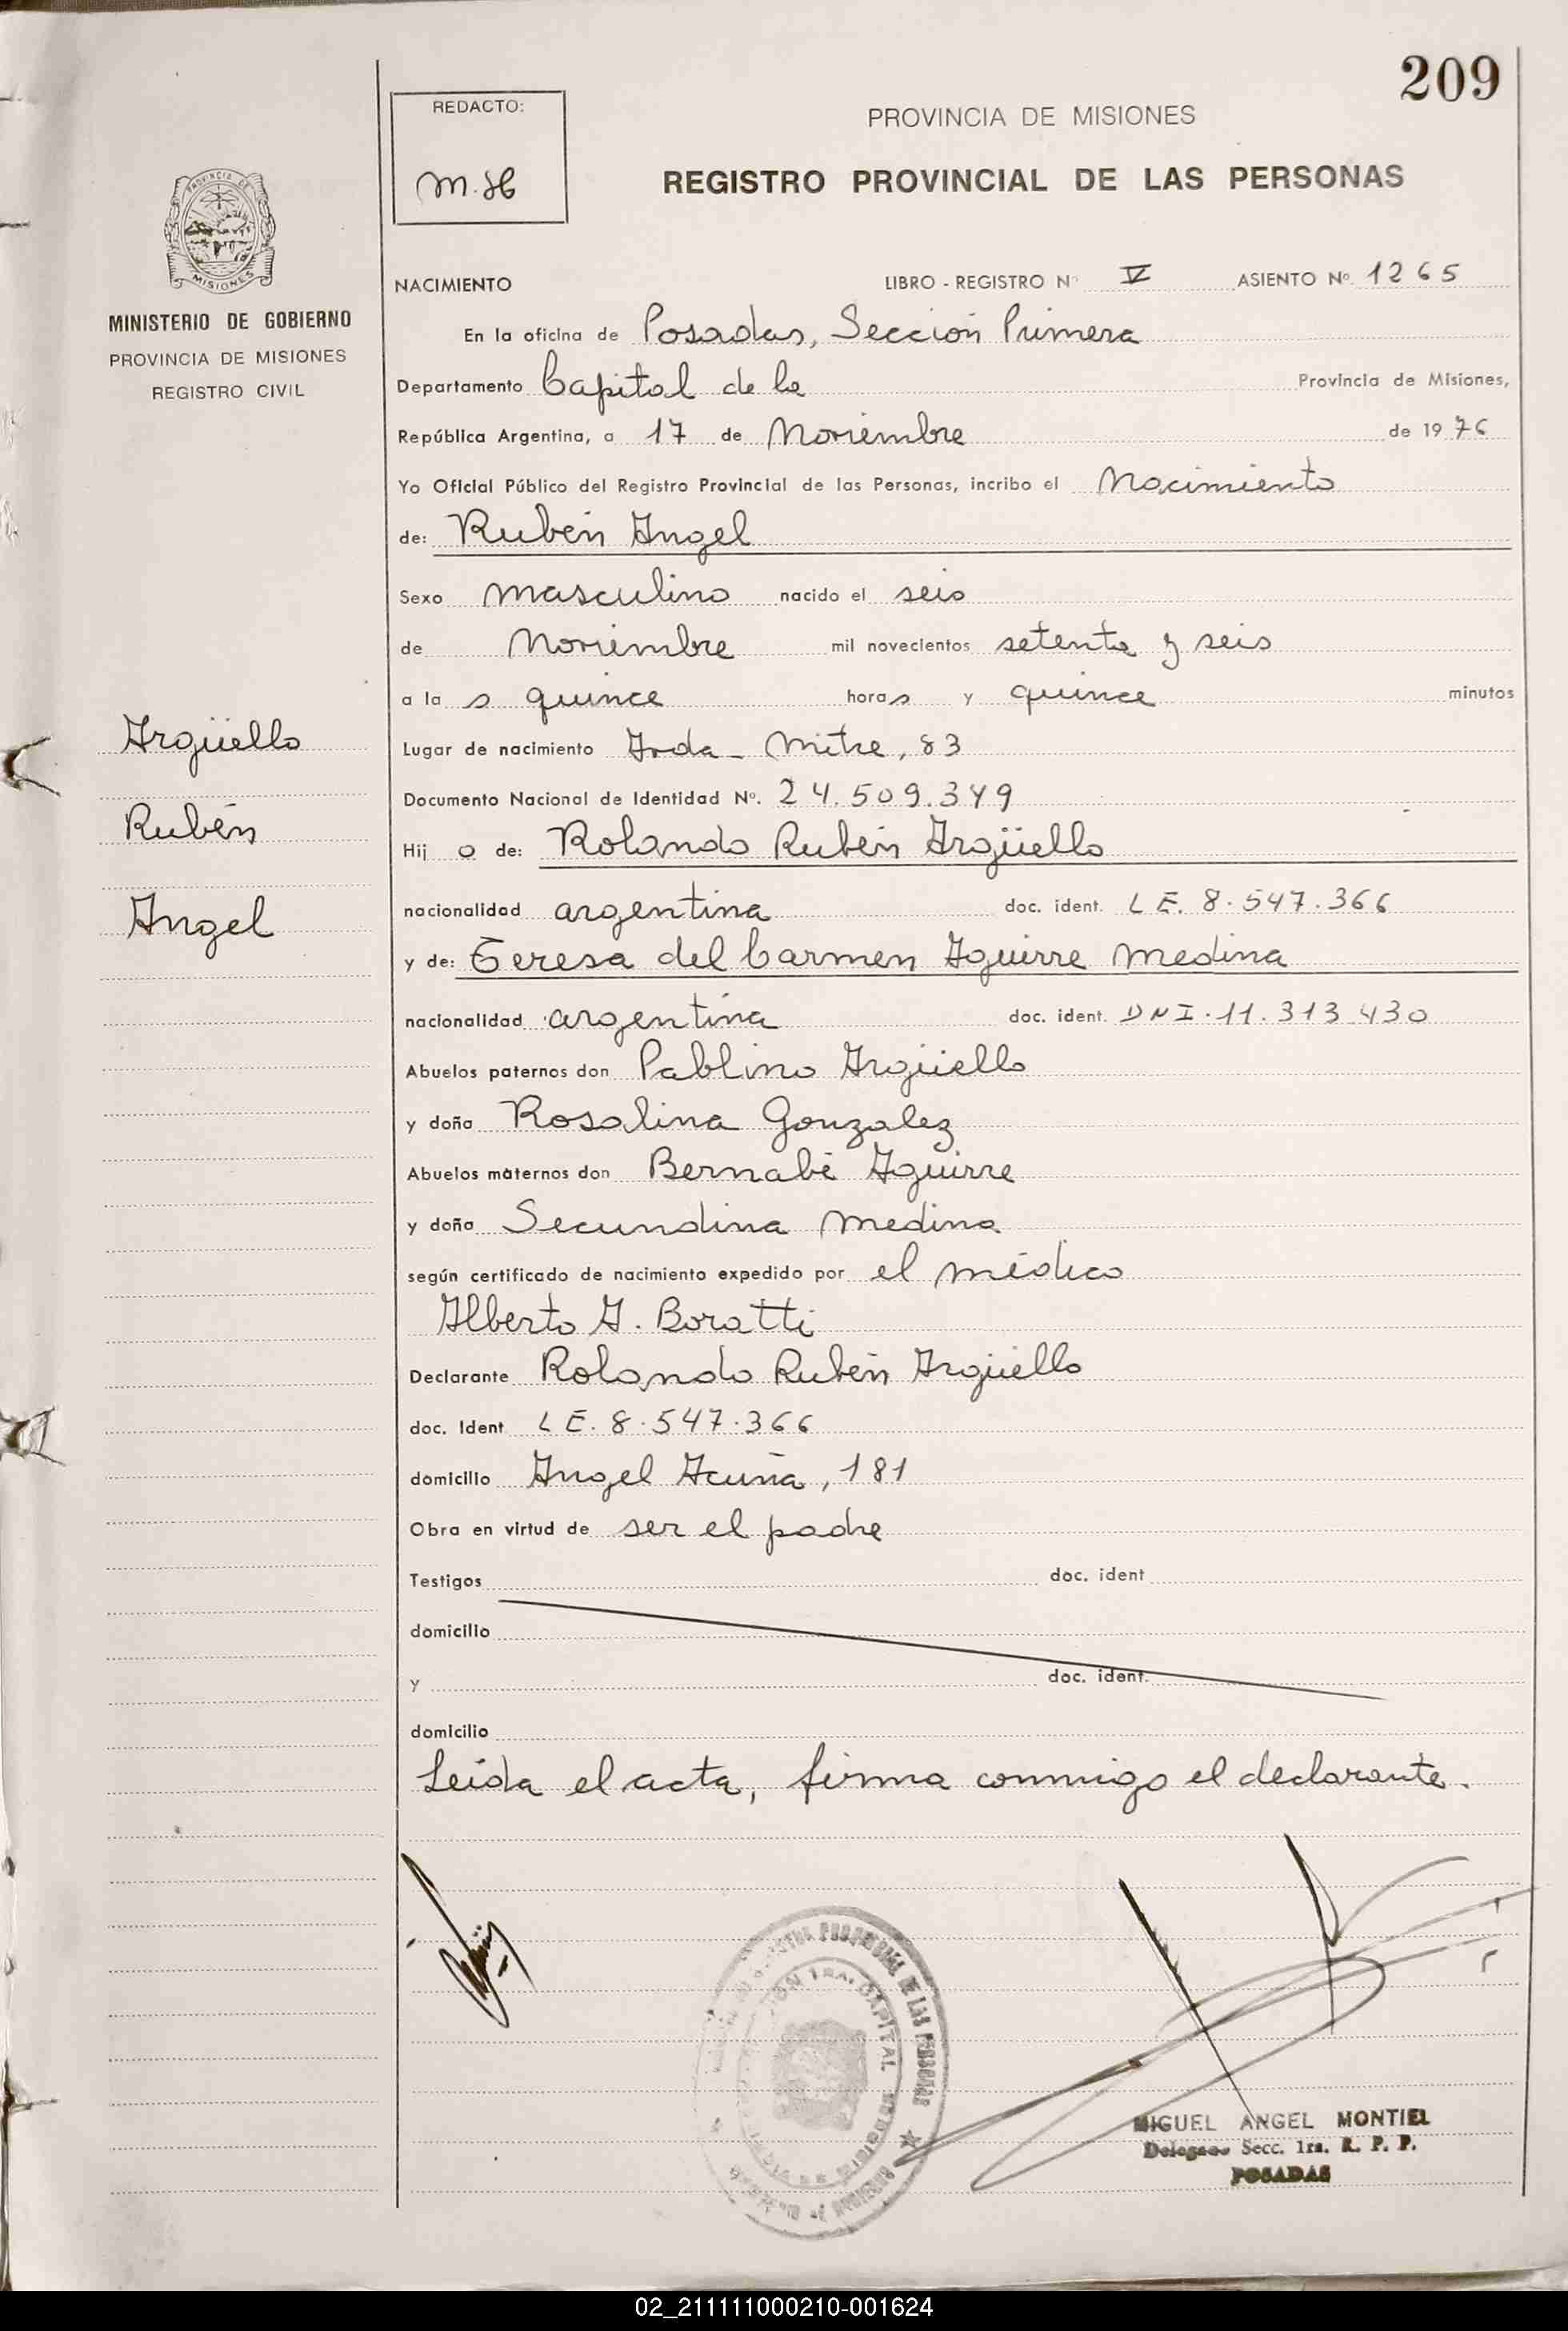 209
REDACTO:
M.H
PROVINCIA DE MISIONES
REGISTRO PROVINCIAL DE LAS PERSONAS
PROVINCIA DE
MISIONES
MINISTERIO DE GOBIERNO
PROVINCIA DE MISIONES
REGISTRO CIVIL
NACIMIENTO LIBRO - REGISTRO Nº V ASIENTO Nº 1265
En la oficina de Posadas, Sección Primera
Departamento Capital de la Provincia de Misiones,
República Argentina, a 17 de Noviembre de 1976
Yo Oficial Público del Registro Provincial de las Personas, incribo el Nacimiento
de: Rubén Angel
Sexo masculino nacido el seis
de Noviembre mil novecientos setenta y seis
a las quince horas y quince minutos
Lugar de nacimiento Avda. Mitre, 83
Documento Nacional de Identidad Nº. 24.509.349
Hijo de: Rolando Rubén Argüello
nacionalidad argentina doc. ident. LE. 8.547.366
y de: Teresa del Carmen Aguirre Medina
nacionalidad argentina doc. ident. DNI. 11.313.430
Abuelos paternos don Pablino Argüello
y doña Rosalina Gonzalez
Abuelos maternos don Bernabé Aguirre
y doña Secundina Medina
según certificado de nacimiento expedido por el médico
Alberto A. Boratti
Declarante Rolando Rubén Argüello
doc. Ident LE. 8.547.366
domicilio Angel Acuña, 181
Obra en virtud de ser el padre
Testigos doc. ident
domicilio
y doc. ident.
domicilio
Leída el acta, firma conmigo el declarante.
Argüello
Rubén
Angel
MIGUEL ANGEL MONTIEL
Delegado Secc. 1ra. R. P. P.
POSADAS
02_211111000210-001624